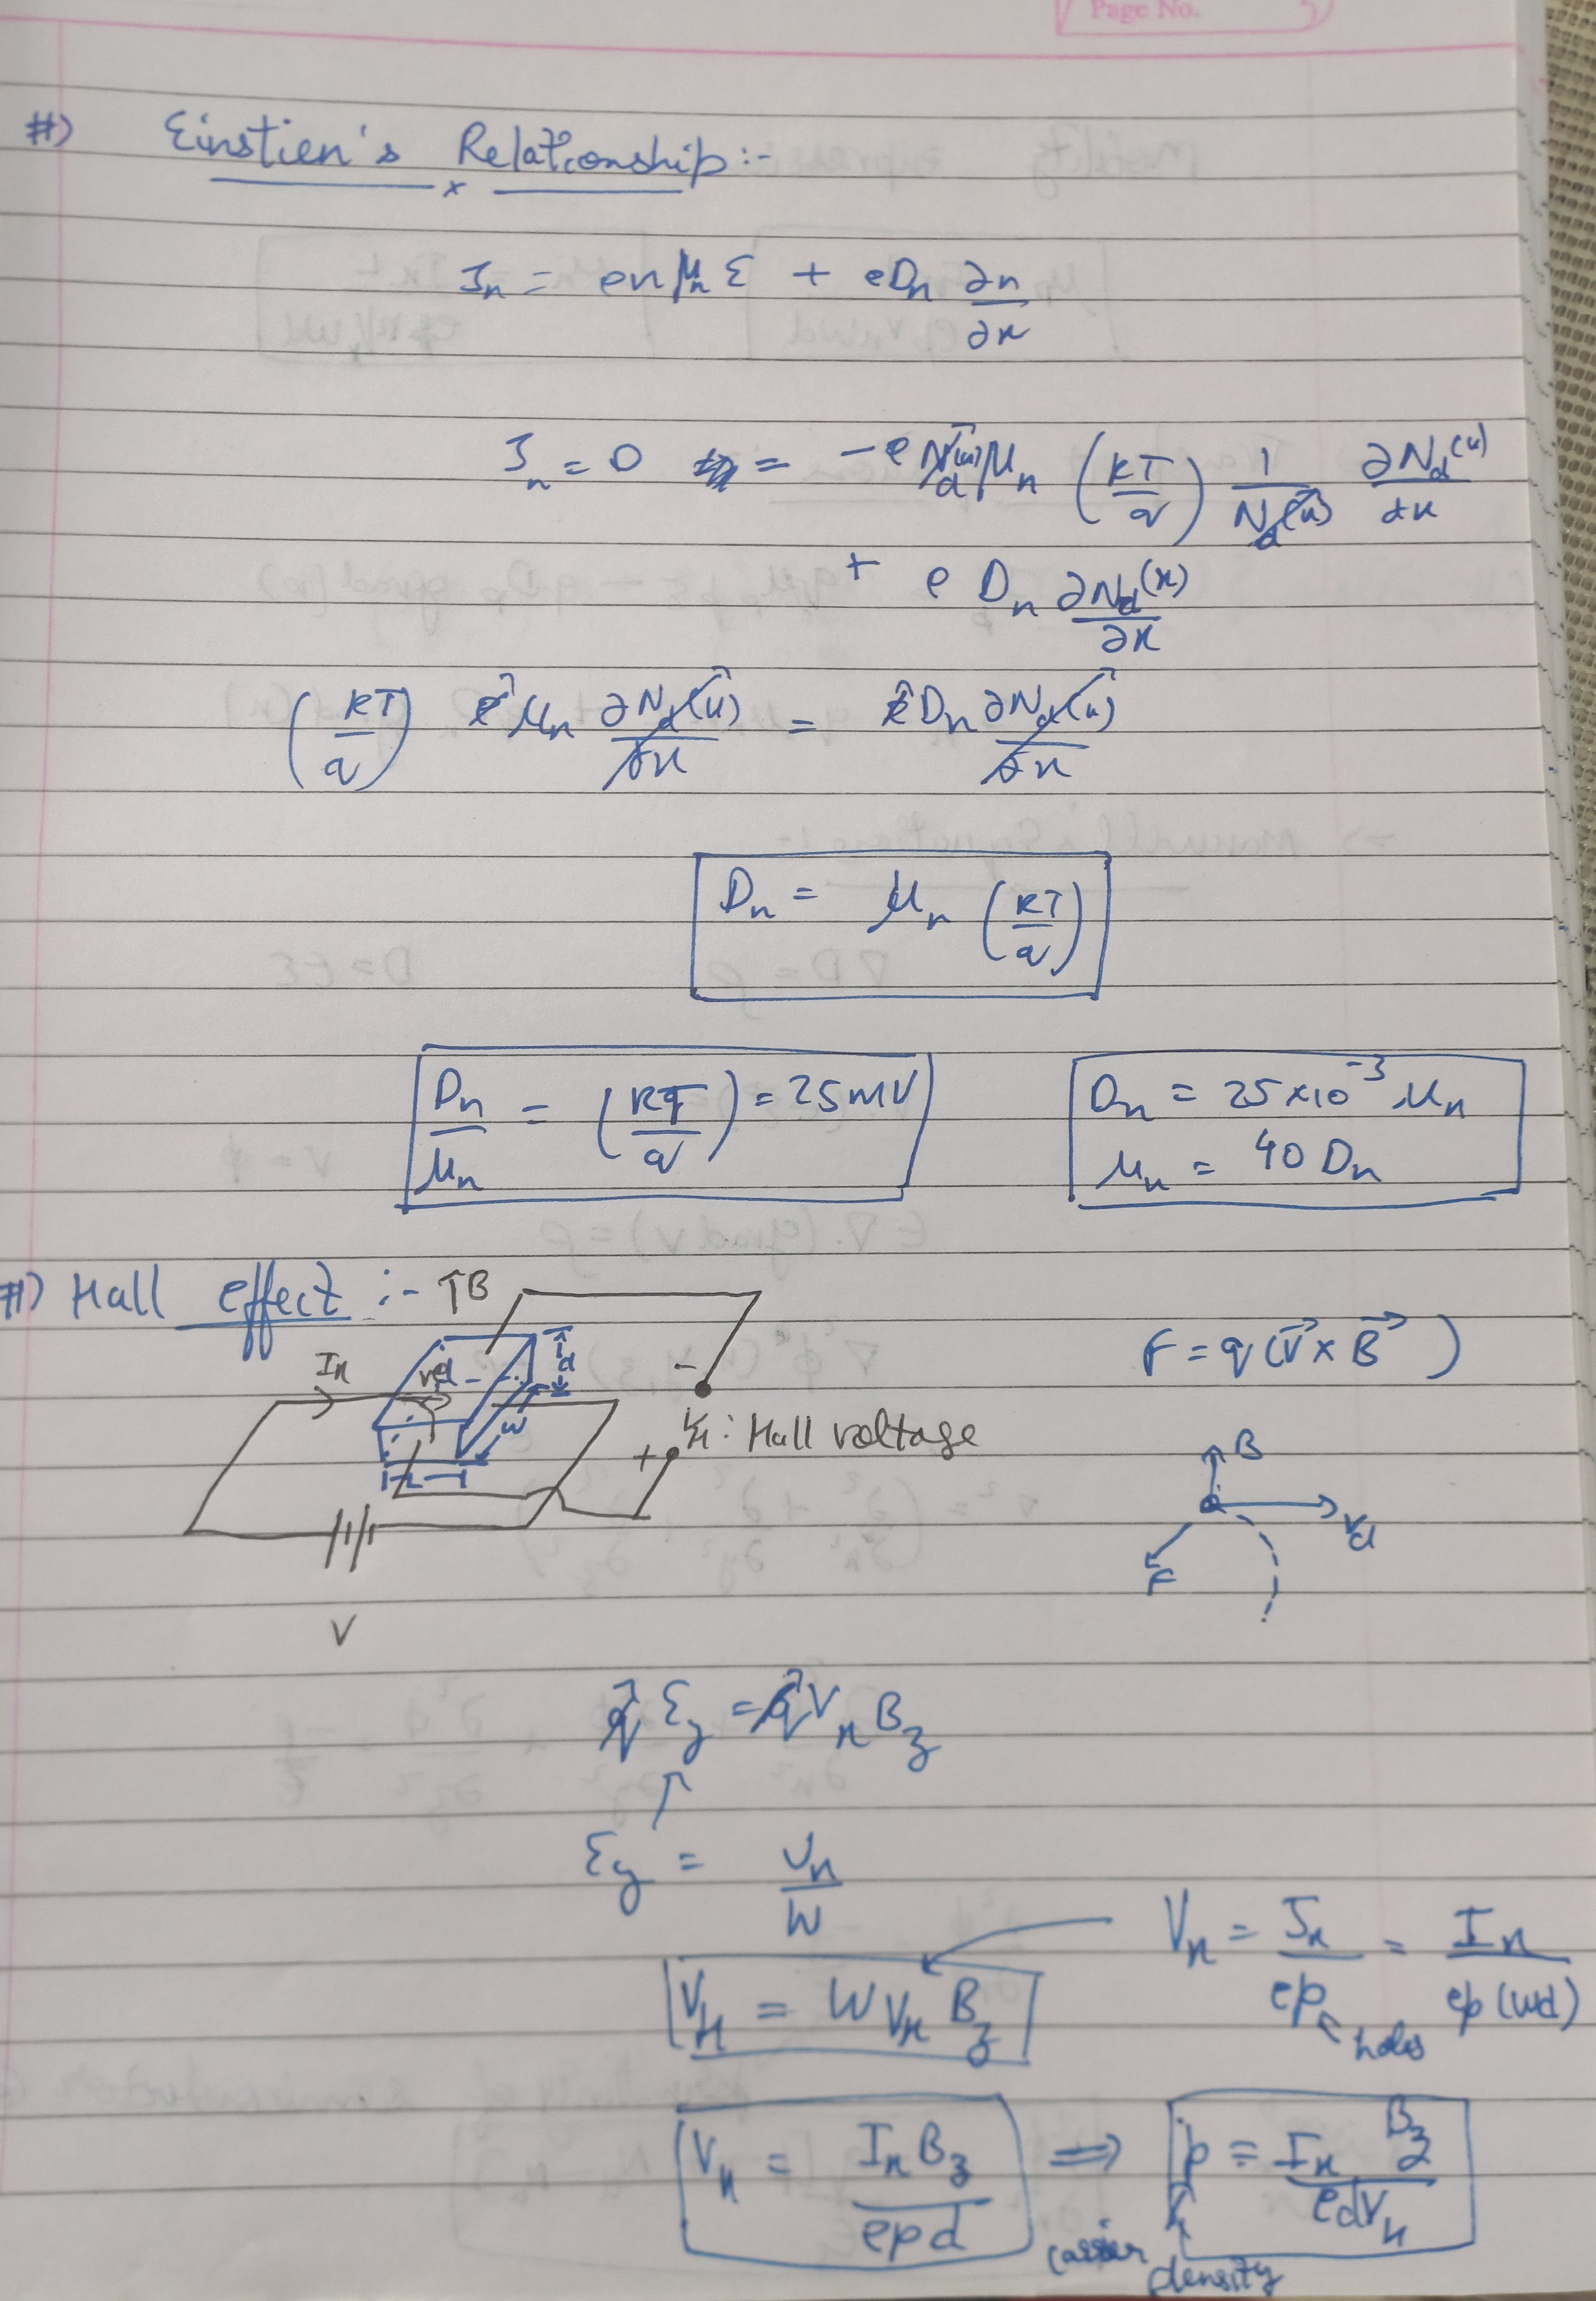 Page No.
#) Einstien's Relationship:-
J_n = e n μ_n ε + e D_n ∂n/∂x
J_n = 0 = -e N_d(x) μ_n (kT/q) 1/N_d(x) ∂N_d(x)/dx
+ e D_n ∂N_d(x)/∂x
(kT/q) e μ_n ∂N_d(x)/∂x = e D_n ∂N_d(x)/∂x
D_n = μ_n (kT/q)
D_n/μ_n = (kT/q) = 25mV
D_n = 25×10^-3 μ_n
μ_n = 40 D_n
#) Hall effect :-
↑B
I_x
d
F = q(V⃗ × B⃗)
-
w
V_H : Hall voltage
+
L
B
V_d
F
V
q ε_y = q V_x B_z
ε_y = V_H/W
V_x = J_x/ep = I_x/ep(wd)
holes
V_H = W V_x B_z
V_H = I_x B_z/epd ⟹ p = I_x B_z/edV_H
carrier density